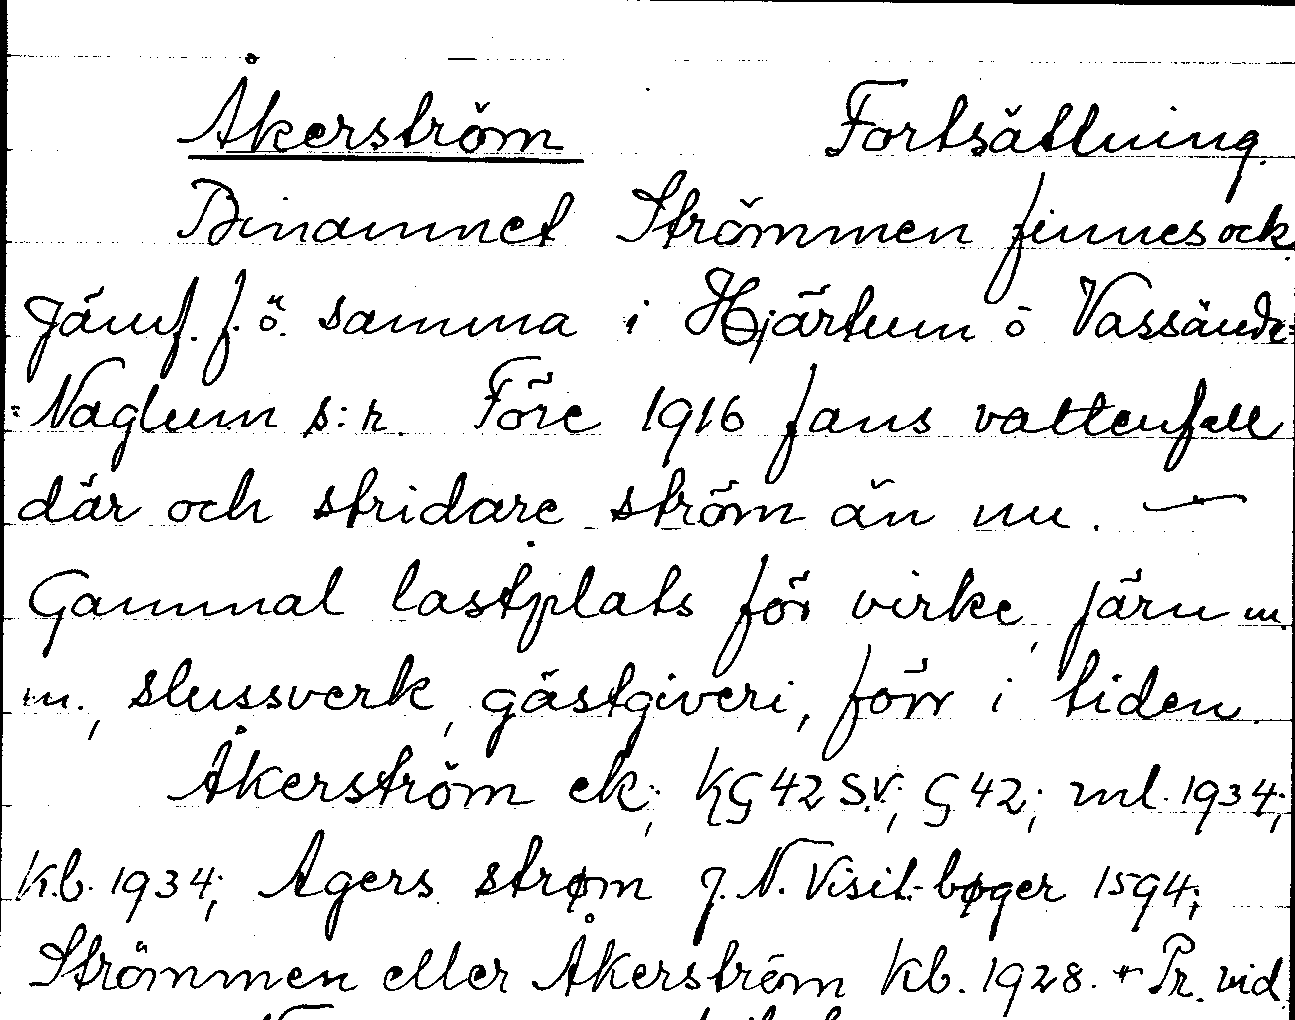 Åkerström Fortsättning.
Binamnet Strömmen finnes ock.
Jämf. f. ö. samma i Hjärtum o Vassände-
-Naglum s:r. Före 1916 fans vattenfall
där och stridare ström än nu. —
Gammal lastplats för virke, järn m.
m., slussverk, gästgiveri, förr i tiden.
Åkerström ek; KG 42 S.V; G 42; ml. 1934;
Kb. 1934; Agers strøm J. N. Visit-bøger 1594;
Strömmen eller Åkerström Kb. 1928. + Pr. vid